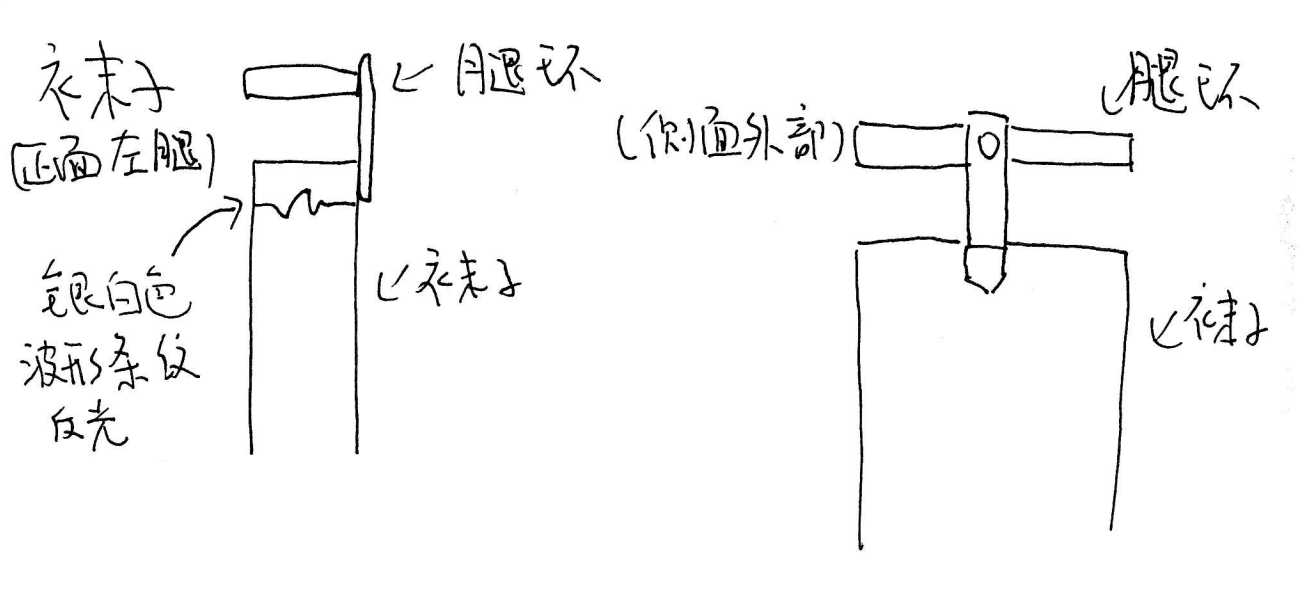 袜子
(正面左腿)
银白色
波形条纹
反光
腿环
袜子
(侧面外部)
腿环
袜子